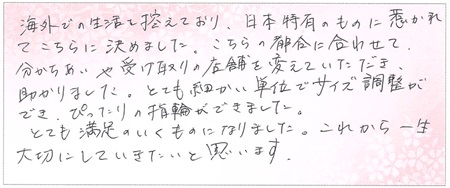 海外での生活を控えており、日本特有のものに惹かれ
てこちらに決めました。こちらの都合に合わせて、
分かちあいや受け取りの店舗を変えていただき、
助かりました。とても細かい単位でサイズ調整が
でき、ぴったりの指輪ができました。
とても満足のいくものになりました。これから一生
大切にしていきたいと思います。